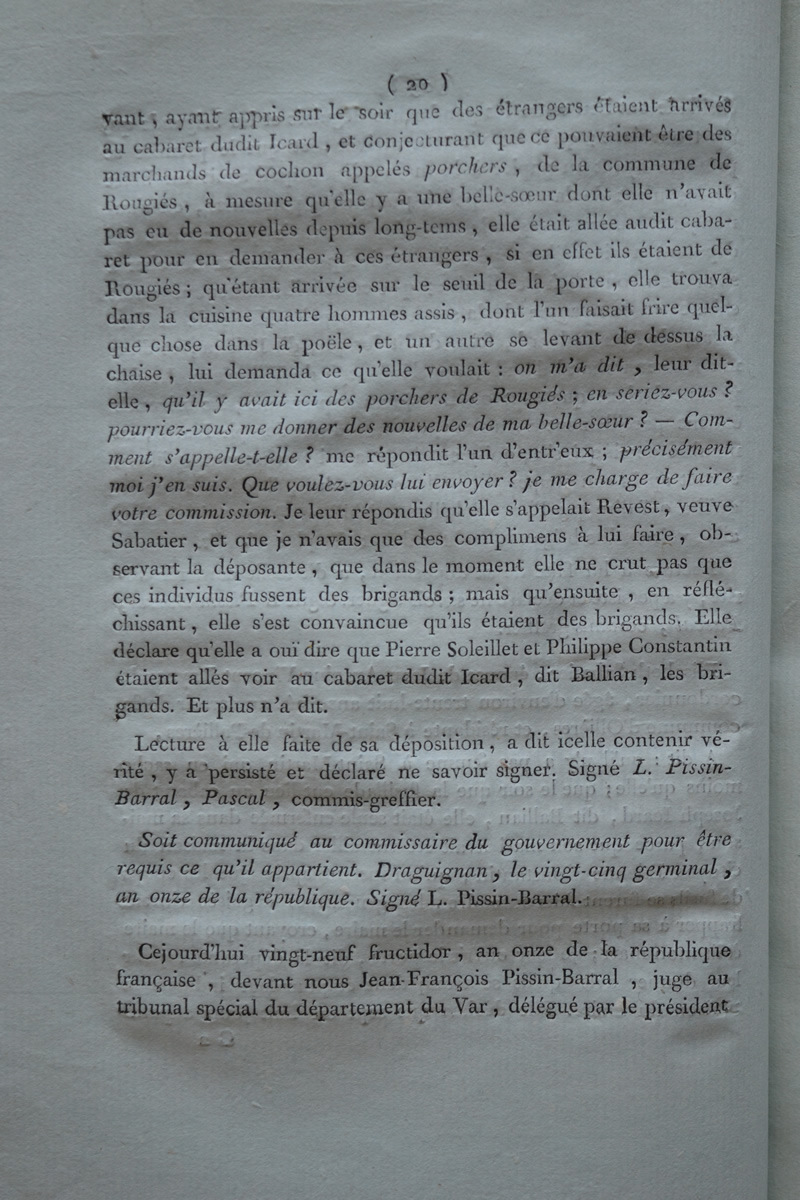 ( 20 )
vant, ayant appris sur le soir que des étrangers étaient arrivés
au cabaret dudit Icard, et conjecturant que ce pouvaient être des
marchands de cochon appelés porchers, de la commune de
Rougiés, à mesure qu'elle y a une belle-sœur dont elle n'avait
pas eu de nouvelles depuis long-tems, elle était allée audit caba-
ret pour en demander à ces étrangers, si en effet ils étaient de
Rougiés ; qu'étant arrivée sur le seuil de la porte, elle trouva
dans la cuisine quatre hommes assis, dont l'un faisait frire quel-
que chose dans la poële, et un autre se levant de dessus la
chaise, lui demanda ce qu'elle voulait : on m'a dit, leur dit-
elle, qu'il y avait ici des porchers de Rougiés ; en seriez-vous ?
pourriez-vous me donner des nouvelles de ma belle-sœur ? — Com-
ment s'appelle-t-elle ? me répondit l'un d'entr'eux ; précisément
moi j'en suis. Que voulez-vous lui envoyer ? je me charge de faire
votre commission. Je leur répondis qu'elle s'appelait Revest, veuve
Sabatier, et que je n'avais que des complimens à lui faire, ob-
servant la déposante, que dans le moment elle ne crut pas que
ces individus fussent des brigands ; mais qu'ensuite, en réflé-
chissant, elle s'est convaincue qu'ils étaient des brigands. Elle
déclare qu'elle a ouï dire que Pierre Soleillet et Philippe Constantin
étaient allés voir au cabaret dudit Icard, dit Ballian, les bri-
gands. Et plus n'a dit.
Lecture à elle faite de sa déposition, a dit icelle contenir vé-
rité, y a persisté et déclaré ne savoir signer. Signé L. Pissin-
Barral, Pascal, commis-greffier.
Soit communiqué au commissaire du gouvernement pour être
requis ce qu'il appartient. Draguignan, le vingt-cinq germinal,
an onze de la république. Signé L. Pissin-Barral.
Cejourd'hui vingt-neuf fructidor, an onze de la république
française, devant nous Jean-François Pissin-Barral, juge au
tribunal spécial du département du Var, délégué par le président